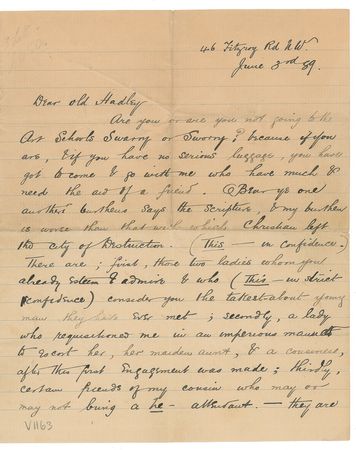 46 Fitzroy Rd N.W.
June 3rd 89.
Dear old Hadley
Are you or are you not going to the
Art Schools Swarry or Sworry? because if you
are, & if you have no serious luggage, you have
got to come & go with me who have much &
need the aid of a friend. (Bear ye one
another's burthens says the Scripture, & my burthen
is worse than that with which Christian left
the city of Destruction. (This — in confidence.)
There are; first, those two ladies whom you
already esteem & admire & who (This — in strict
confidence) consider you the talkest-about young
man they have ever met; secondly, a lady
who requisitioned me in an imperious manner
to escort her, her maiden aunt, & a
after this first Engagement was made; thirdly,
certain friends of my cousin who may or
may not bring a he - attendant. — they are
V1163